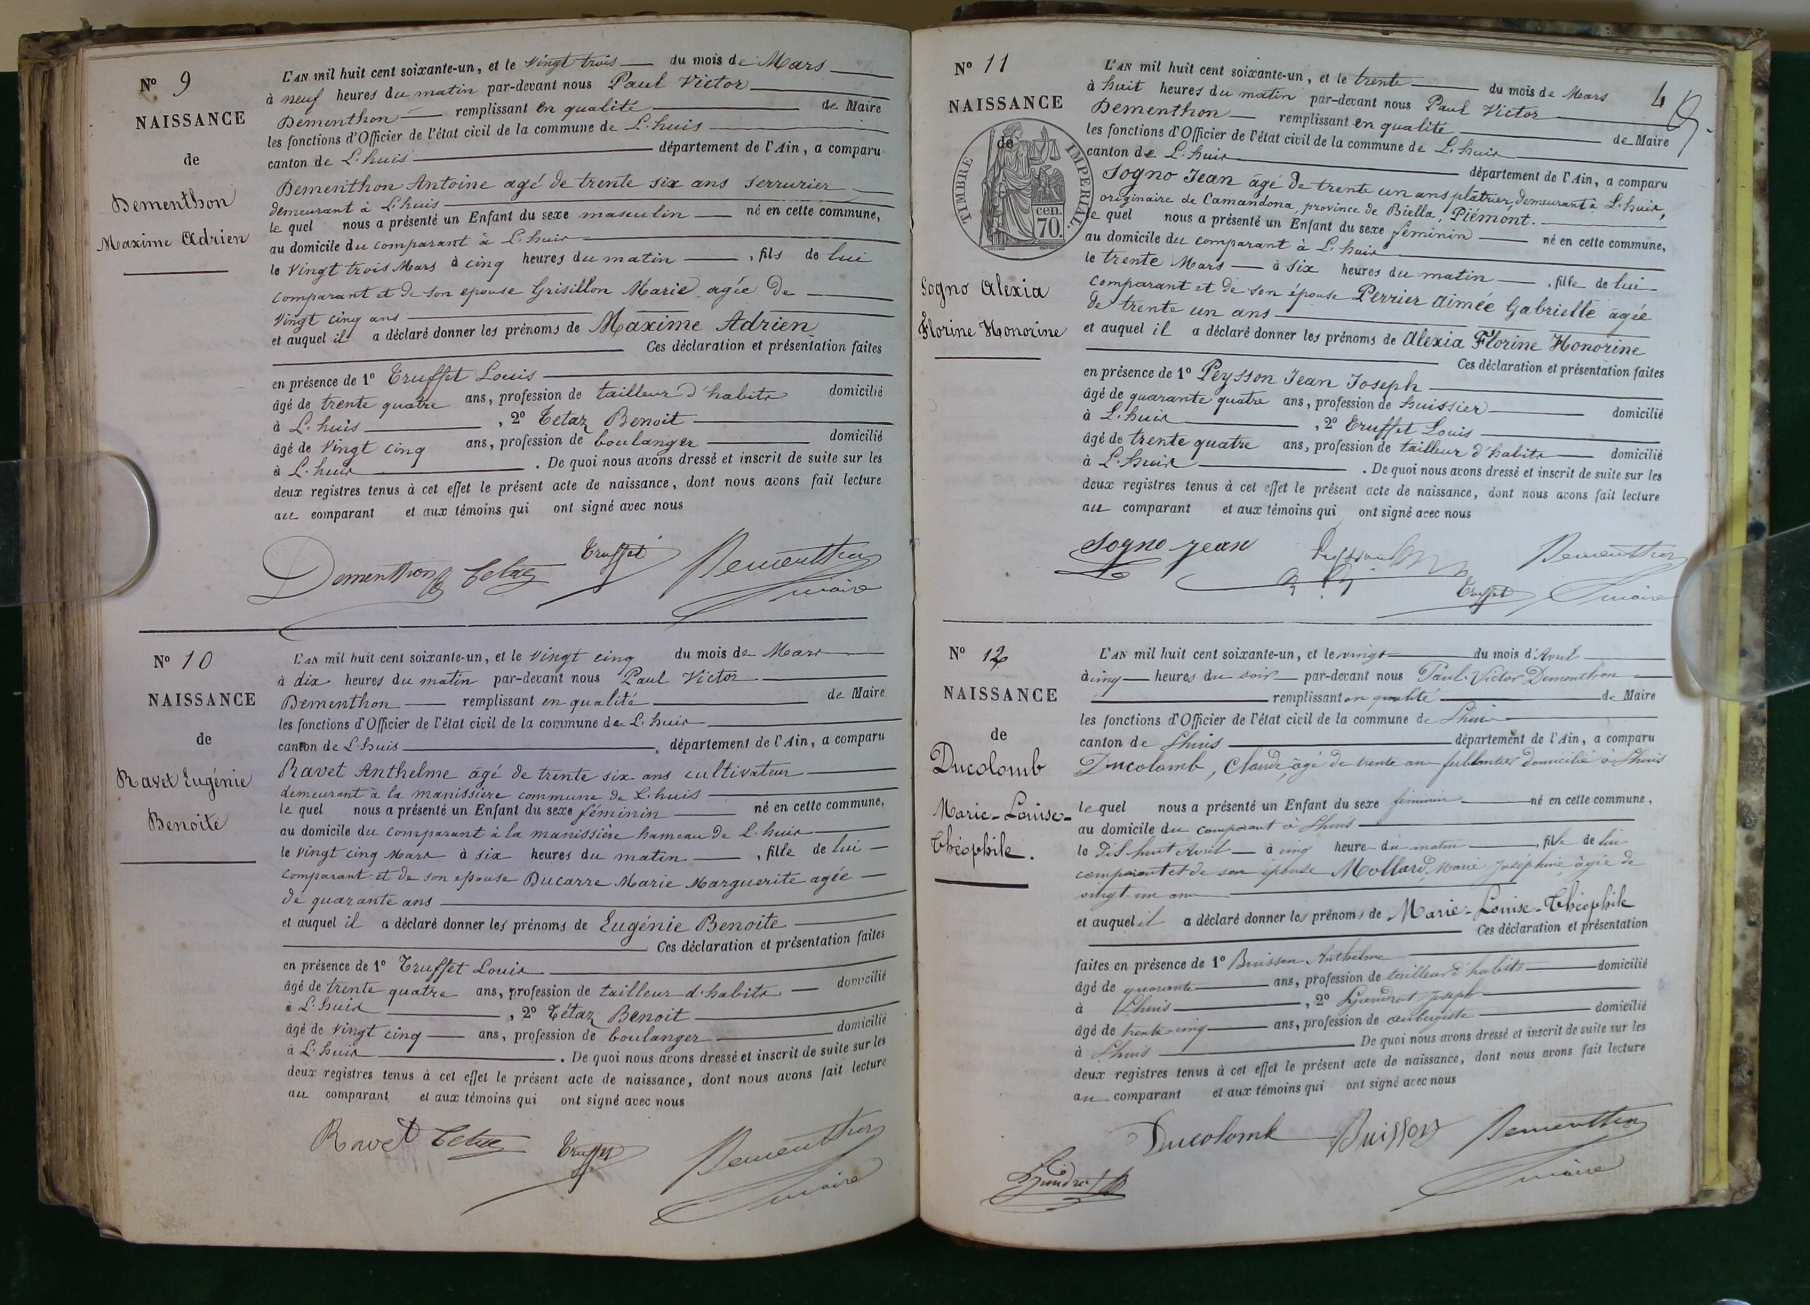 Nº 9
NAISSANCE
de
Dementhon
Maxime Adrien
L'AN mil huit cent soixante-un, et le vingt trois du mois de Mars
à neuf heures du matin par-devant nous Paul Victor
Dementhon remplissant en qualité de Maire
les fonctions d'Officier de l'état civil de la commune de L'huis
canton de L'huis département de l'Ain, a comparu
Dementhon Antoine agé de trente six ans serrurier
demeurant à L'huis
le quel nous a présenté un Enfant du sexe masculin né en cette commune,
au domicile du comparant à L'huis
le vingt trois Mars à cinq heures du matin, fils de lui
comparant et de son epouse Grisillon Marie agée de
vingt cinq ans
et auquel il a déclaré donner les prénoms de Maxime Adrien
Ces déclaration et présentation faites
en présence de 1º Truffet Louis
âgé de trente quatre ans, profession de tailleur d'habits domicilié
à L'huis, 2º Tétaz Benoit
âgé de vingt cinq ans, profession de boulanger domicilié
à L'huis. De quoi nous avons dressé et inscrit de suite sur les
deux registres tenus à cet effet le présent acte de naissance, dont nous avons fait lecture
au comparant et aux témoins qui ont signé avec nous
Dementhon Tetaz Truffet Dementhon
maire
Nº 10
NAISSANCE
de
Ravet Eugénie
Benoite
L'AN mil huit cent soixante-un, et le vingt cinq du mois de Mars
à dix heures du matin par-devant nous Paul Victor
Dementhon remplissant en qualité de Maire
les fonctions d'Officier de l'état civil de la commune de L'huis
canton de L'huis département de l'Ain, a comparu
Ravet Anthelme âgé de trente six ans cultivateur
demeurant à la manissière commune de L'huis
le quel nous a présenté un Enfant du sexe féminin né en cette commune,
au domicile du comparant à la manissière hameau de L'huis
le vingt cinq Mars à six heures du matin, fille de lui
comparant et de son epouse Ducarre Marie Marguerite agée
de quarante ans
et auquel il a déclaré donner les prénoms de Eugénie Benoite
Ces déclaration et présentation faites
en présence de 1º Truffet Louis
âgé de trente quatre ans, profession de tailleur d'habits domicilié
à L'huis, 2º Tétaz Benoit
âgé de vingt cinq ans, profession de boulanger domicilié
à L'huis. De quoi nous avons dressé et inscrit de suite sur les
deux registres tenus à cet effet le présent acte de naissance, dont nous avons fait lecture
au comparant et aux témoins qui ont signé avec nous
Ravet Tetaz Truffet Dementhon
maire
4
Nº 11
NAISSANCE
de
TIMBRE IMPERIAL.
cen.
70.
Sogno Alexia
Florine Honorine
L'AN mil huit cent soixante-un, et le trente du mois de Mars
à huit heures du matin par-devant nous Paul Victor
Dementhon remplissant en qualité de Maire
les fonctions d'Officier de l'état civil de la commune de L'huis
canton de L'huis département de l'Ain, a comparu
Sogno Jean âgé de trente un ans plâtrier, demeurant à L'huis,
originaire de Camandona, province de Biella, Piémont.
le quel nous a présenté un Enfant du sexe féminin né en cette commune,
au domicile du comparant à L'huis
le trente Mars à six heures du matin, fille de lui
comparant et de son épouse Perrier Aimée Gabrielle âgée
de trente un ans
et auquel il a déclaré donner les prénoms de Alexia Florine Honorine
Ces déclaration et présentation faites
en présence de 1º Peysson Jean Joseph
âgé de quarante quatre ans, profession de huissier domicilié
à L'huis, 2º Truffet Louis
âgé de trente quatre ans, profession de tailleur d'habits domicilié
à L'huis. De quoi nous avons dressé et inscrit de suite sur les
deux registres tenus à cet effet le présent acte de naissance, dont nous avons fait lecture
au comparant et aux témoins qui ont signé avec nous
Sogno Jean Dementhon
Truffet maire
Nº 12
NAISSANCE
de
Ducolomb
Marie-Louise-
Théophile.
L'AN mil huit cent soixante-un, et le vingt du mois d'Avril
à cinq heures du soir par-devant nous Paul-Victor Dementhon
remplissant en qualité de Maire
les fonctions d'Officier de l'état civil de la commune de Lhuis
canton de Lhuis département de l'Ain, a comparu
Ducolomb, Claude, âgé de trente ans ferblantier domicilié à Lhuis
le quel nous a présenté un Enfant du sexe féminin né en cette commune,
au domicile du comparant à Lhuis
le dix huit Avril à cinq heure du matin, fille de lui
comparant et de son épouse Mollard, Marie Joséphine, âgée de
vingt un ans
et auquel il a déclaré donner les prénoms de Marie-Louise-Théophile
Ces déclaration et présentation
faites en présence de 1º Buisson Anthelme
âgé de quarante ans, profession de tailleur d'habits domicilié
à Lhuis, 2º Joseph
âgé de trente-cinq ans, profession de aubergiste domicilié
à Lhuis De quoi nous avons dressé et inscrit de suite sur les
deux registres tenus à cet effet le présent acte de naissance, dont nous avons fait lecture
au comparant et aux témoins qui ont signé avec nous
Ducolomb Buisson Dementhon
maire